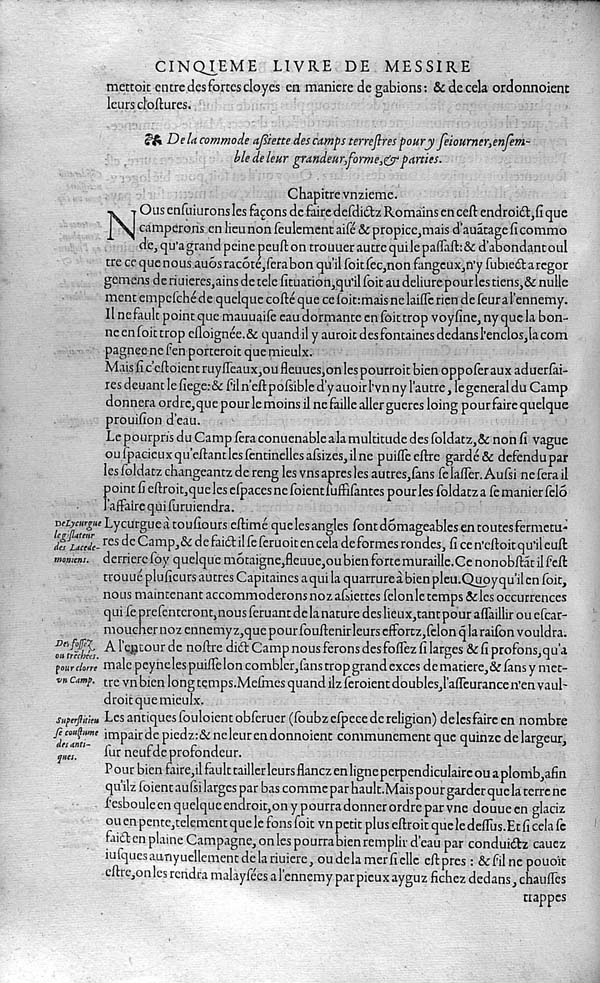 CINQIEME LIVRE DE MESSIRE
mettoit entre des fortes cloyes en maniere de gabions: & de cela ordonnoient
leurs cloſtures.
De la commode aſsiette des camps terreſtres pour y ſeiourner, enſem-
ble de leur grandeur, forme, & parties.
Chapitre vnzieme.
NOus enſuiurons les façons de faire deſdictz Romains en ceſt endroict, ſi que
camperons en lieu non ſeulement aiſé & propice, mais d'auãtage ſi commo
de, qu'a grand peine peuſt on trouuer autre qui le paſſaſt: & d'abondant oul
tre ce que nous auõs racõté, ſera bon qu'il ſoit ſec, non fangeux, n'y ſubiect a regor
gemens de riuieres, ains de tele ſituation, qu'il ſoit au deliure pour les tiens, & nulle
ment empeſché de quelque coſté que ce ſoit: mais ne laiſſe rien de ſeur a l'ennemy.
Il ne fault point que mauuaiſe eau dormante en ſoit trop voyſine, ny que la bon-
ne en ſoit trop eſloignée. & quand il y auroit des fontaines dedans l'enclos, la com
pagnee ne ſ'en porteroit que mieulx.
Mais ſi c'eſtoient ruyſſeaux, ou fleuues, on les pourroit bien oppoſer aux aduerſai-
res deuant le ſiege: & ſ'il n'eſt poſsible d'y auoir l'vn ny l'autre, le general du Camp
donnera ordre, que pour le moins il ne faille aller gueres loing pour faire quelque
prouiſion d'eau.
Le pourpris du Camp ſera conuenable a la multitude des ſoldatz, & non ſi vague
ou ſpacieux qu'eſtant les ſentinelles aſsizes, il ne puiſſe eſtre gardé & defendu par
les ſoldatz changeantz de reng les vns apres les autres, ſans ſe laſſer. Auſsi ne ſera il
point ſi eſtroit, que les eſpaces ne ſoient ſuffiſantes pour les ſoldatz a ſe manier ſelõ
l'affaire qui ſuruiendra.
De Lycurgue
legiſlateur
des Lacede-
moniens.
Lycurgue à touſiours eſtimé que les angles ſont dõmageables en toutes fermetu-
res de Camp, & de faict il ſe ſeruoit en cela de formes rondes, ſi ce n'eſtoit qu'il euſt
derriere ſoy quelque mõtaigne, fleuue, ou bien forte muraille. Ce nonobſtãt il ſ'eſt
trouué pluſieurs autres Capitaines a qui la quarrure à bien pleu. Quoy qu'il en ſoit,
nous maintenant accommoderons noz aſsiettes ſelon le temps & les occurrences
qui ſe preſenteront, nous ſeruant de la nature des lieux, tant pour aſſaillir ou eſcar-
moucher noz ennemyz, que pour ſouſtenir leurs effortz, ſelon q̃ la raiſon vouldra.
Des foſſez
ou trẽchées.
pour clorre
vn Camp.
A l'entour de noſtre dict Camp nous ferons des foſſez ſi larges & ſi profons, qu'a
male peyne les puiſſe lon combler, ſans trop grand exces de matiere, & ſans y met-
tre vn bien long temps. Meſmes quand ilz ſeroient doubles, l'aſſeurance n'en vaul-
droit que mieulx.
Superſtitieu
ſe couſtume
des anti-
ques.
Les antiques ſouloient obſeruer (ſoubz eſpece de religion) de les faire en nombre
impair de piedz: & ne leur en donnoient communement que quinze de largeur,
ſur neuf de profondeur.
Pour bien faire, il fault tailler leurs flancz en ligne perpendiculaire ou a plomb, afin
qu'ilz ſoient auſsi larges par bas comme par hault. Mais pour garder que la terre ne
ſ'esboule en quelque endroit, on y pourra donner ordre par vne douue en glaciz
ou en pente, telement que le fons ſoit vn petit plus eſtroit que le deſſus. Et ſi cela ſe
faict en plaine Campagne, on les pourra bien remplir d'eau par conduictz cauez
iuſques au nyuellement de la riuiere, ou de la mer ſi elle eſt pres: & ſ'il ne pouoit
eſtre, on les rendra malayſées a l'ennemy par pieux ayguz fichez dedans, chauſſes
trappes